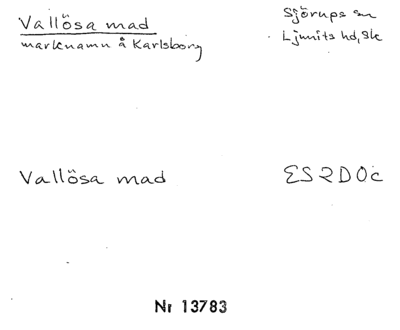 Vallösa mad
marknamn å Karlsborg
Sjörups sn
Ljunits hd, Sk
Vallösa mad
ES2D0c
Nr 13783